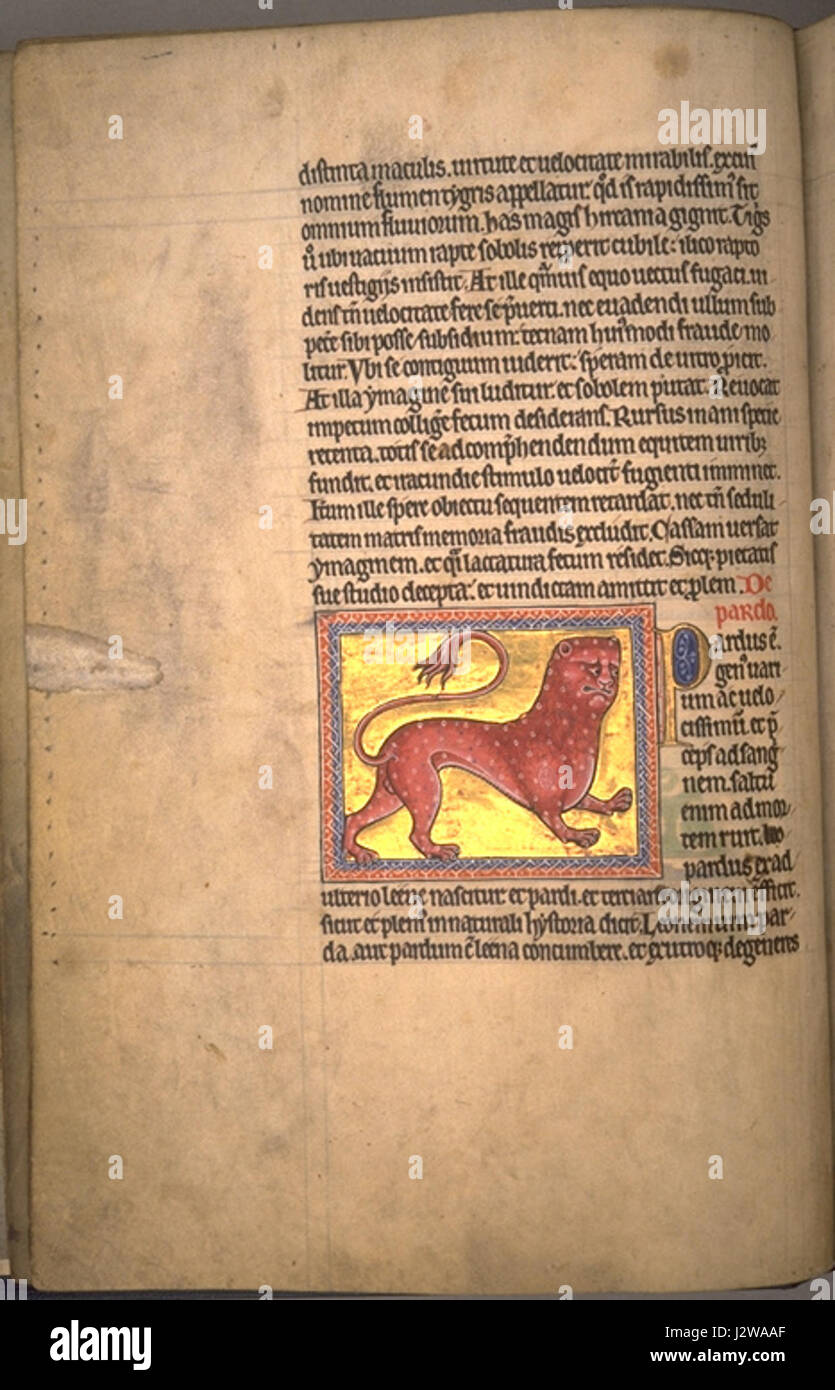 distincta maculis. uirtute et uelocitate mirabilis. ex cui᷒
nomine flumen tygris appellatur. qd̓ is rapidissim᷒ sit
omnium fluuiorum. has magis hircania gignit. Tigͥs
u̓ ubi uacuum rapte sobolis reperit cubile: ilico rapto
ris uestigijs insistit. At ille qͣmuis equo uectus fugaci. ui
dens tn̄ uelocitate fere se p̄uerti. nec euadendi ullum sub
pet̓e sibi posse subsidium: tecnam hui᷒modi fraude mo
litur. Vbi se contiguum uiderit: speram de uitro ꝓicit.
At illa ymagine sui luditur. et sobolem putat. Reuocat
impetum collig̓e fetum desiderans. Rursus inani specie
retenta. totis se ad comp̄hendendum equitem uirib;
fundit. et iracundie stimulo uelocit̓ fugienti imminet.
It̓um ille spere obiectu sequentem retardat. nec tn̄ seduli
tatem matris memoria fraudis excludit. Cassam uersat
ymaginem. et qͣi lactatura fetum residet. Sicq; pietatis
sue studio decepta: et uindictam amittit et ꝓlem. De
pardo.
Pardus ē.
gen᷒ uari
um ac uelo
cissimū. et p̄
ceps ad sang
nem. saltu
enim ad mor
tem ruit. leo
pardus ex ad
ulterio leene nascitur et pardi. et terciam originem efficit.
sicut et plini᷒ in naturali hystoria dicit. Leonem cum par
da. aut pardum cū leena concumbere. et ex utroq; degeneres
alamy
a
alamy stock photo
Image ID: J2WAAF
www.alamy.com